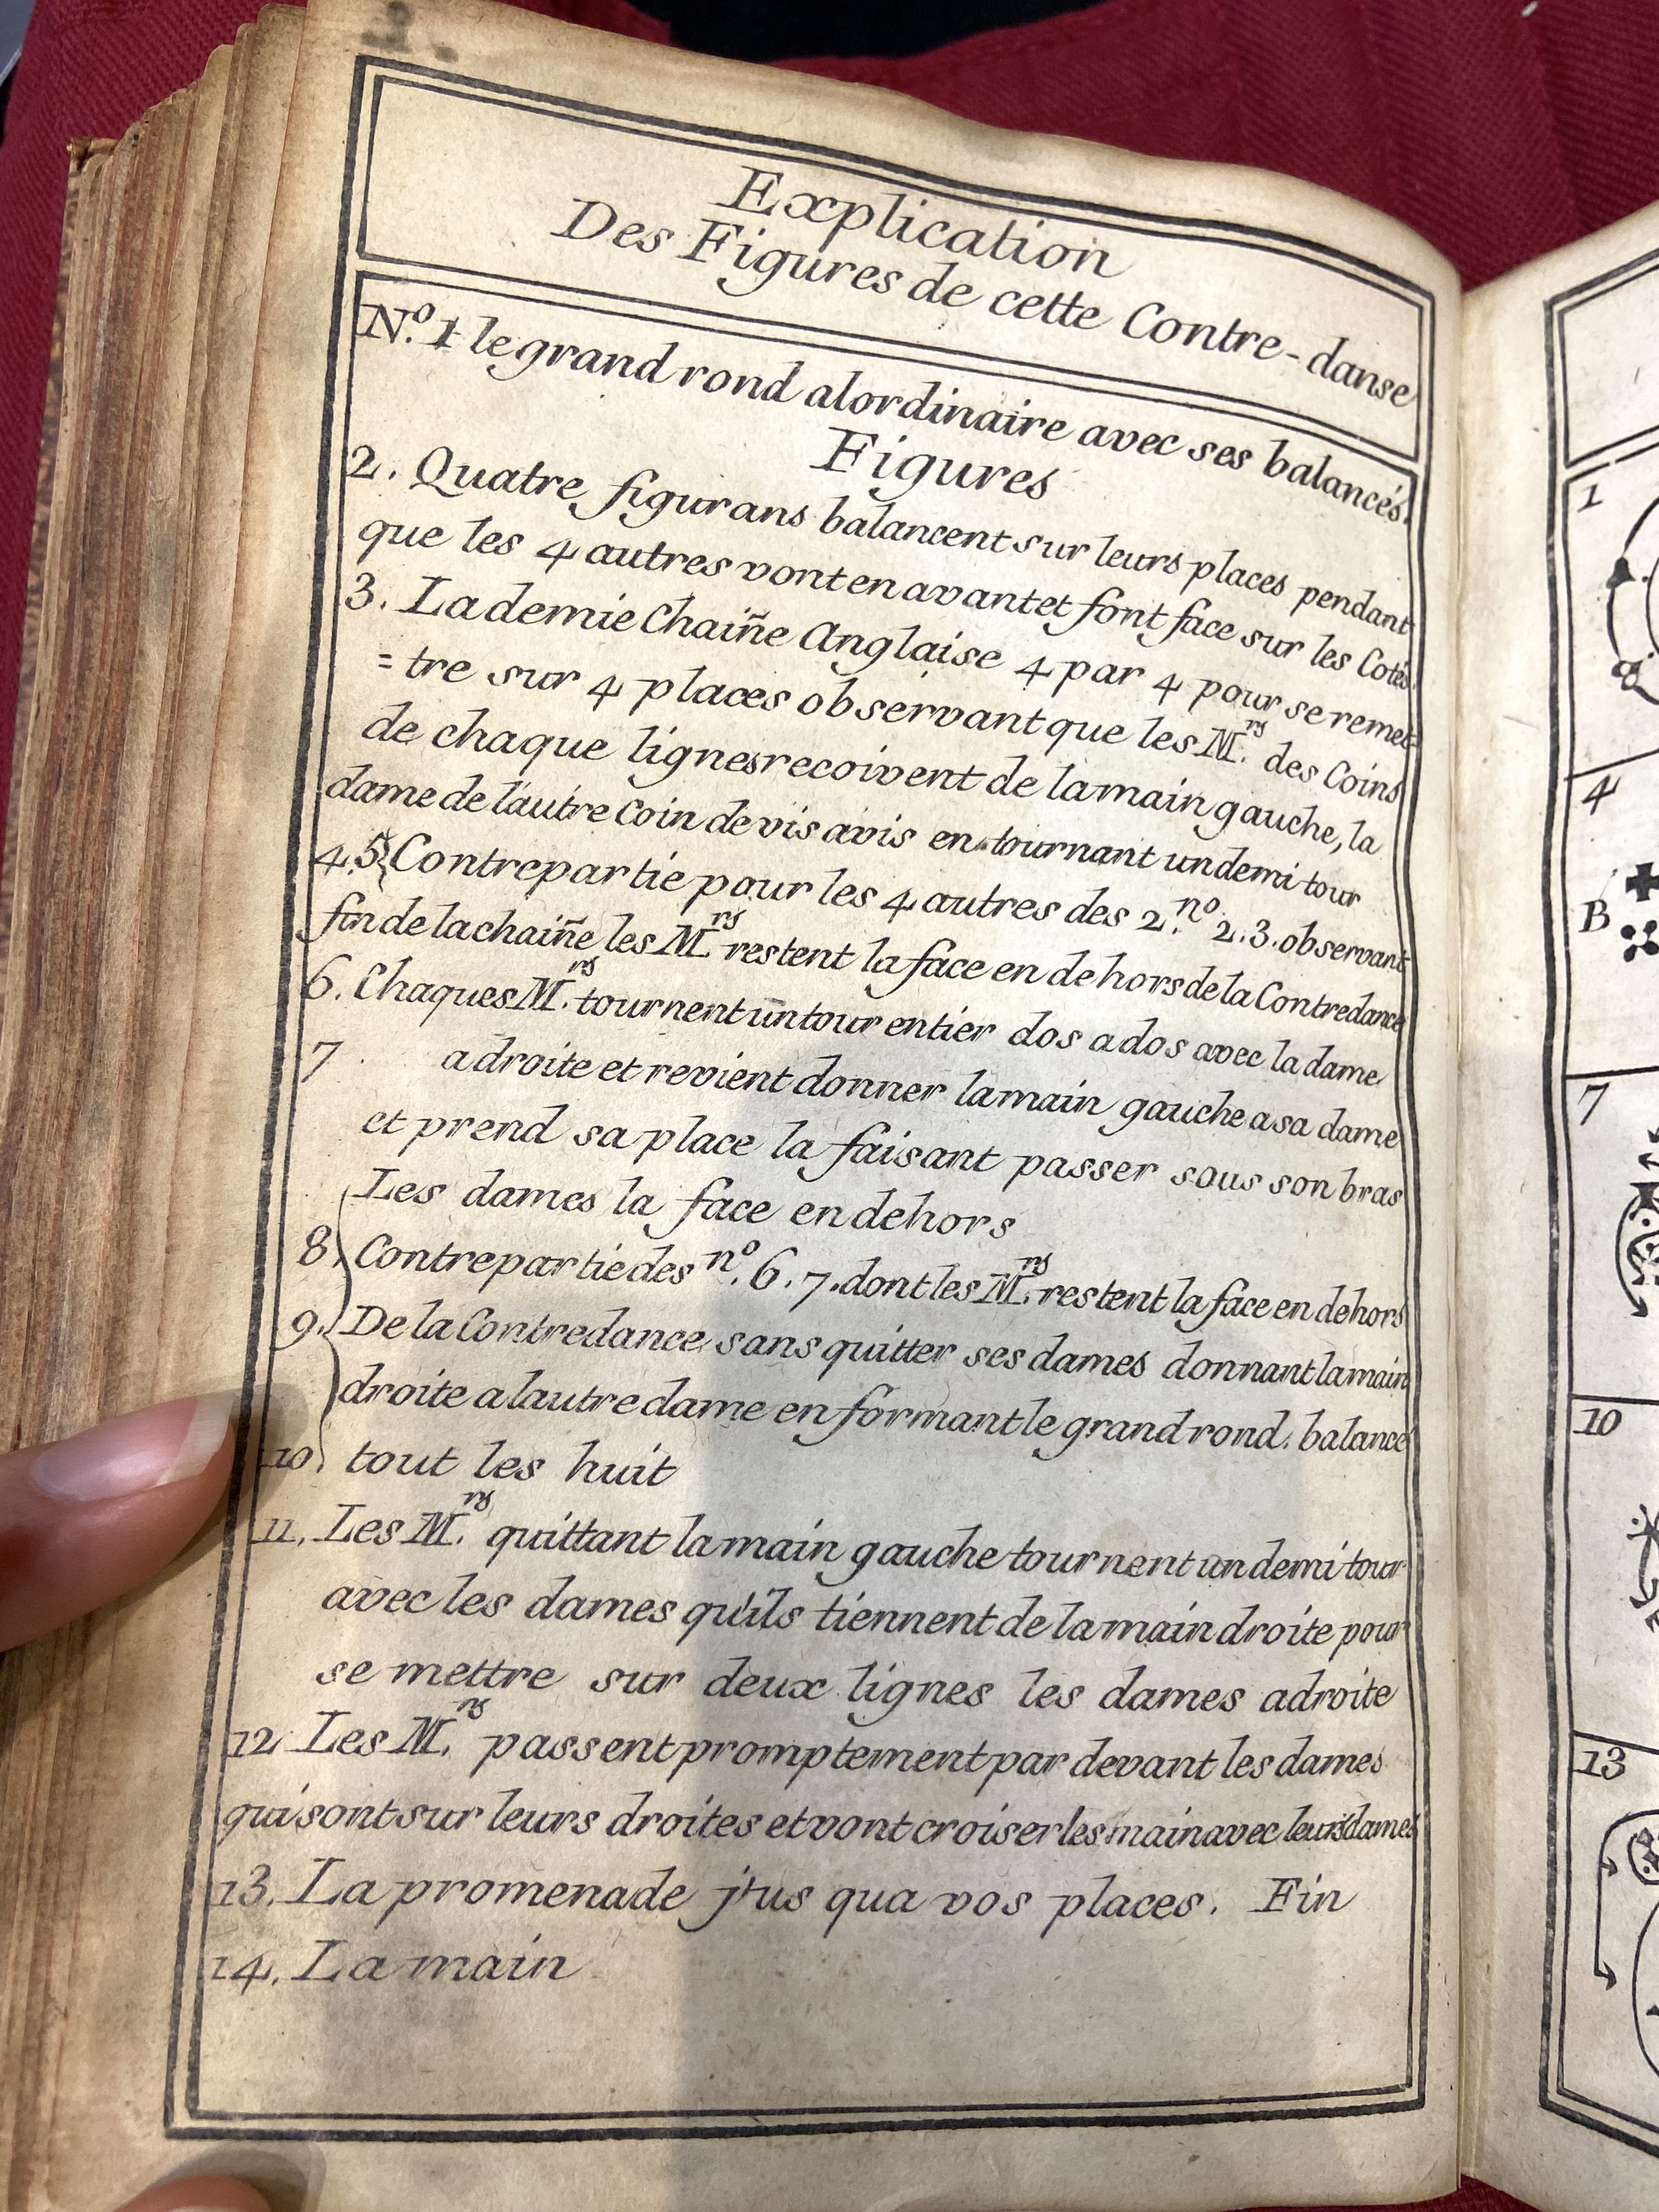 2.
Explication
Des Figures de cette Contre-danse
N.º 1 le grand rond alordinaire avec ses balancés.
Figures
2. Quatre figurans balancent sur leurs places pendant
que les 4 autres vont en avant et font face sur les Cotés.
3. La demie Chaiñe Anglaise 4 par 4 pour se remet=
=tre sur 4 places observant que les M.rs des Coins
de chaque lignes recoivent de la main gauche, la
dame de l'autre Coin de vis avis en tournant un demi tour
4.5 Contrepartie pour les 4 autres des 2.nº 2.3. observant
fin de la chaiñe les M.rs restent la face en dehors de la Contredance
6. Chaques M.rs tournent un tour entier dos a dos avec la dame
7 a droite et revient donner la main gauche a sa dame
et prend sa place la faisant passer sous son bras
Les dames la face en dehors
8. Contrepartie des nº. 6. 7. dont les M.rs restent la face en dehors
9. De la Contredance sans quitter ses dames donnant la main
droite a lautre dame en formant le grand rond. balancé
10. tout les huit
11. Les M.rs quittant la main gauche tournent un demi tour
avec les dames qu'ils tiennent de la main droite pour
se mettre sur deux lignes les dames a droite
12. Les M.rs passent promptement par devant les dames
qui sont sur leurs droites et vont croiser les main avec leurs dames
13. La promenade j'us qua vos places. Fin
14. La main
1
4
B
7
10
13